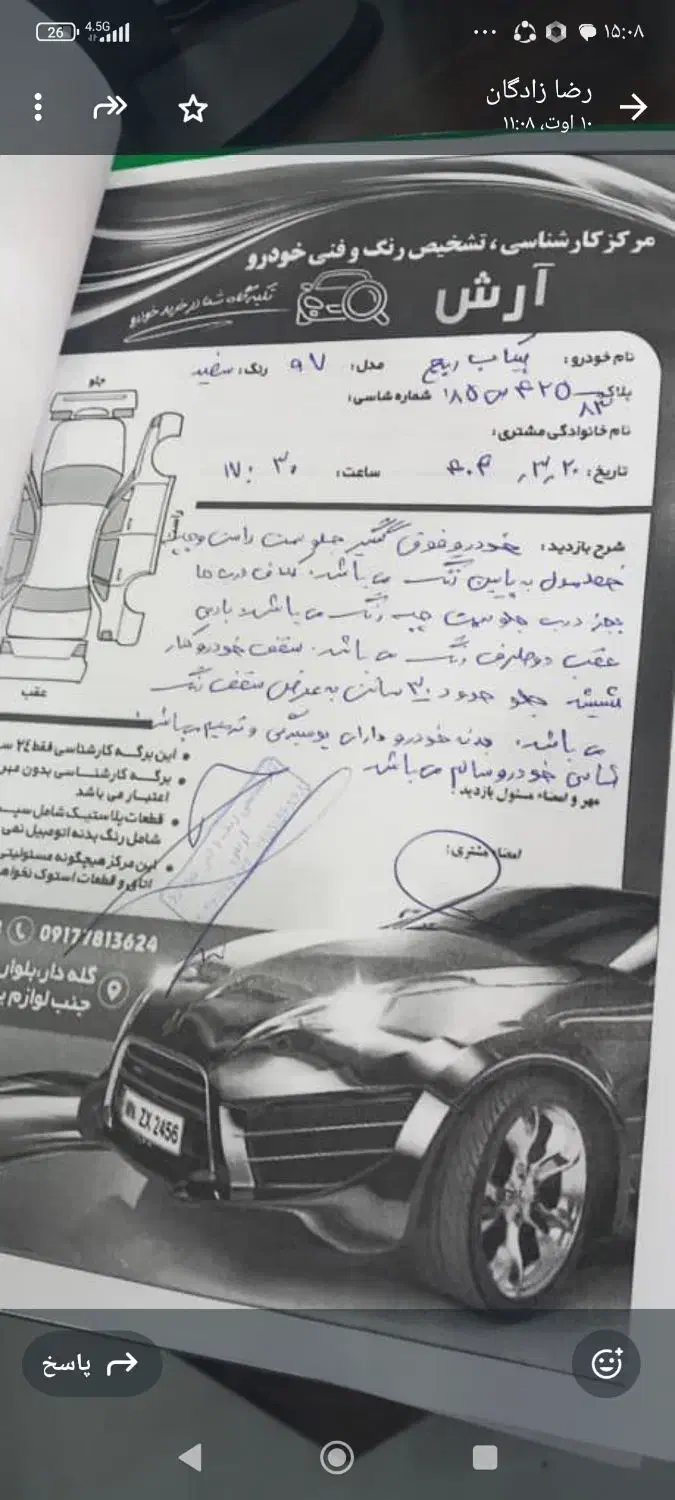 ۱۵:۰۸
4.5G
26
رضا زادگان
۱۰ اوت، ۱۱:۰۸
مرکز کارشناسی، تشخیص رنگ و فنی خودرو
آرش
تکیه گاه شما در خرید خودرو
نام خودرو: پیکاب ریچ مدل: ۹۷ رنگ: سفید
پلاک: ۴۲۵ س ۸۵ شماره شاسی:
۸۳
نام خانوادگی مشتری:
تاریخ: ۲۰ / ۳ / ۴۰۴ ساعت: ۱۷:۳۰
جلو
راست
عقب
شرح بازدید: خودرو فوق گلگیر جلو سمت راست و چپ
خط مدول به پایین رنگ می باشد. کلاف درب ها
بجز درب جلو سمت چپ رنگ می باشد. باربی
عقب دوطرف رنگ می باشد. سقف خودرو کنار
شیشه جلو حدود ۳۰ سانت به عرض سقف رنگ
می باشد. بدنه خودرو دارای پوسیدگی و ترمیم میباشد
شاسی خودرو سالم می باشد
مهر و امضاء مسئول بازدید:
امضاء مشتری:
این برگه کارشناسی فقط ۲۴ س
برگه کارشناسی بدون مهر
اعتبار می باشد
قطعات پلاستیک شامل سپ
شامل رنگ بدنه اتومبیل نمی
این مرکز هیچگونه مسئولیتی
اتاق و قطعات استوک نخواه
09177813624
گله دار، بلوار
جنب لوازم ی
ZX 2456
پاسخ